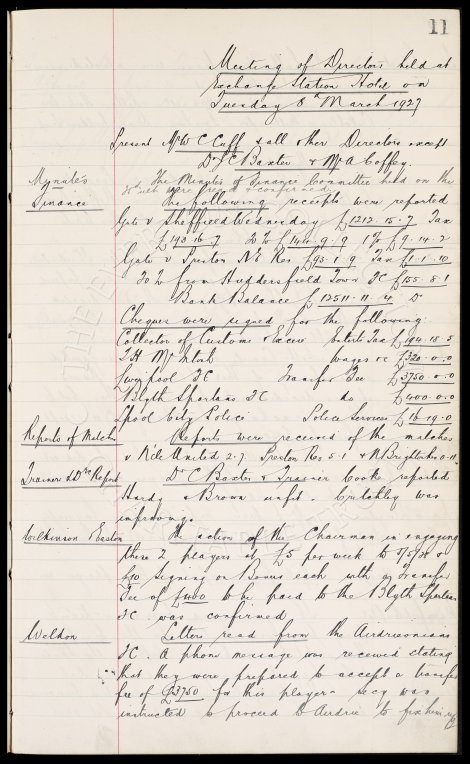 11
Meeting of Directors held at
Exchange Station Hotel on
Tuesday 8th March 1927
Present Mr W C Cuff & all other Directors except
Dr J C Baxter & Mr A Coffey.
Mynute's The Minutes of Finance Committee held on the
were read & confirmed
Finance The following receipts were reported
Gate v Sheffield Wednesday £1212.15.7 Tax
£193.16.7 20% £144.9.9 1% £9.14.2
Gate v Preston N E Res £93.1.9 Tax £1.1.10
20% from Huddersfield Town FC £155.8.1
Bank Balance £12511.11.4 Dr
Cheques were signed for the following:
Collector of Customs & Excise Enterts Tax £194.18.5
T H McIntosh wages &c £320.0.0
Liverpool FC Transfer Fee £3750.0.0
Blyth Spartans FC do £400.0.0
Lpool City Police Police Services £16.19.0
Reports of Matches Reports were received of the matches
v N'cle United 2-7 Preston Res 5-1 & N Brighton 0-11
Trainer & Drs Report Dr C Baxter & Trainer Cooke reported
Hardy & Brown unfit. Critchley was
improving.
Wilkinson Easton The action of the Chairman in engaging
these 2 players at £5 per week to 5/5/28 &
£10 Signing on Bonus each with a Transfer
Fee of £400 to be paid to the Blyth Spartans
FC was confirmed
Weldon Letters read from the Airdrieonians
FC. A phone message was received stating
that they were prepared to accept a transfer
fee of £3750 for this player - secy was
instructed to proceed to Airdrie to fix him up